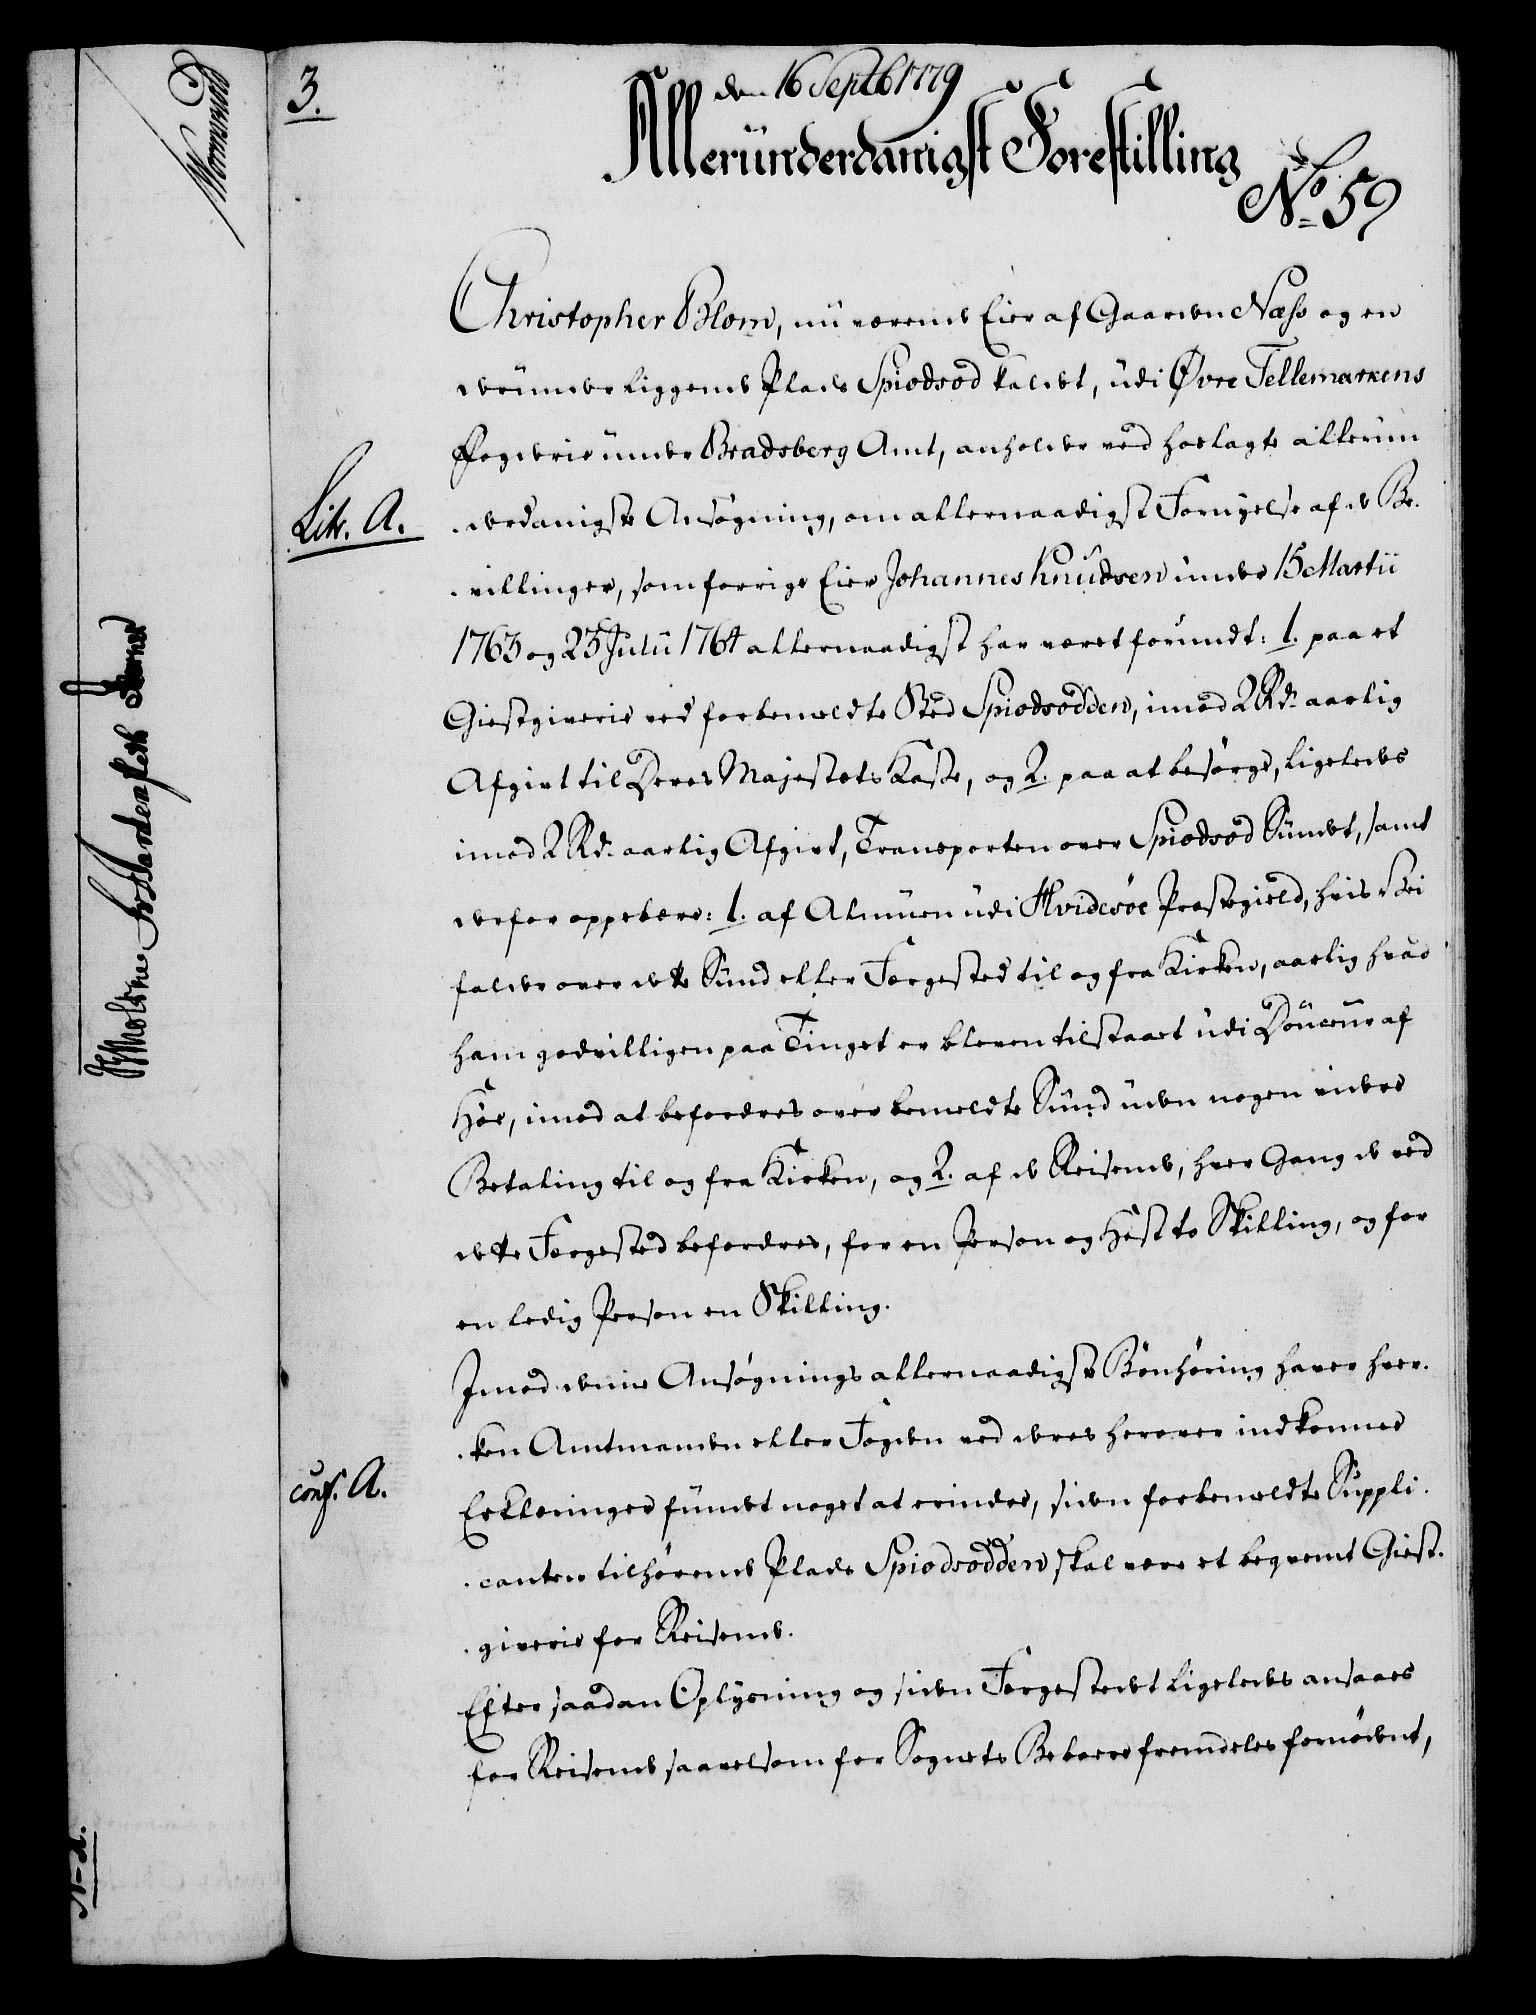 3.
den 16 Septb 1779
Alleründerdanigst Forestilling
No. 59
Christopher Blom, nü værende Eier af Gaarden Næss og en
deründer liggende Plads Spiodsod kaldet, üdi Øvre Tellemarkens
Fogderie ünder Bradsberg Amt, anholder ved hoslagte allerün-
Litr. A.
-derdanigste Ansøgning, om allernaadigst Fornyelse af de Be-
-villinger, som forrige Eier Johannes Knudsen ünder 15 Martii
1763 og 23 Julii 1764 allernaadigst har været forundt: 1. paa et
Giestgiverie ved forbemeldte Sted Spiodsodden, imod 2 Rd. aarlig
Afgivt til Deres Majestæts Kasse, og 2. paa at besørge, ligeledes
imod 2 Rd. aarlig Afgivt, Transporten over Spiodsod Sündet, samt
derfor oppebære: 1. af Almuen üdi Hvidesöe Præstegield, hvis Vei
falder over dette Sünd eller Færgested til og fra Kirken, aarlig hvad
ham godvilligen paa Tinget er bleven tilstaaet üdi Douceur af
Höe, imod at befordres over bemeldte Sünd üden nogen videre
Betaling til og fra Kirken, og 2. af de Reisende, hver Gang de ved
dette Færgested befordres, for en Person og Hest to Skilling, og for
en ledig Person en Skilling.
Imod denne Ansøgnings allernaadigste Bönhöring haver hver-
-ken Amtmanden eller Fogden ved deres herover indkomne
conf. A.
Erklæringer fündet noget at erindre, siden forbemeldte Suppli-
-canten tilhørende Plads Spiodsodden skal være et beqvemt Giest-
-giverie for Reisende.
Efter saadan Oplysning og siden Færgestedet ligeledes ansaaes
for Reisende saavelsom for Sognets Beboere fremdeles fornödent,